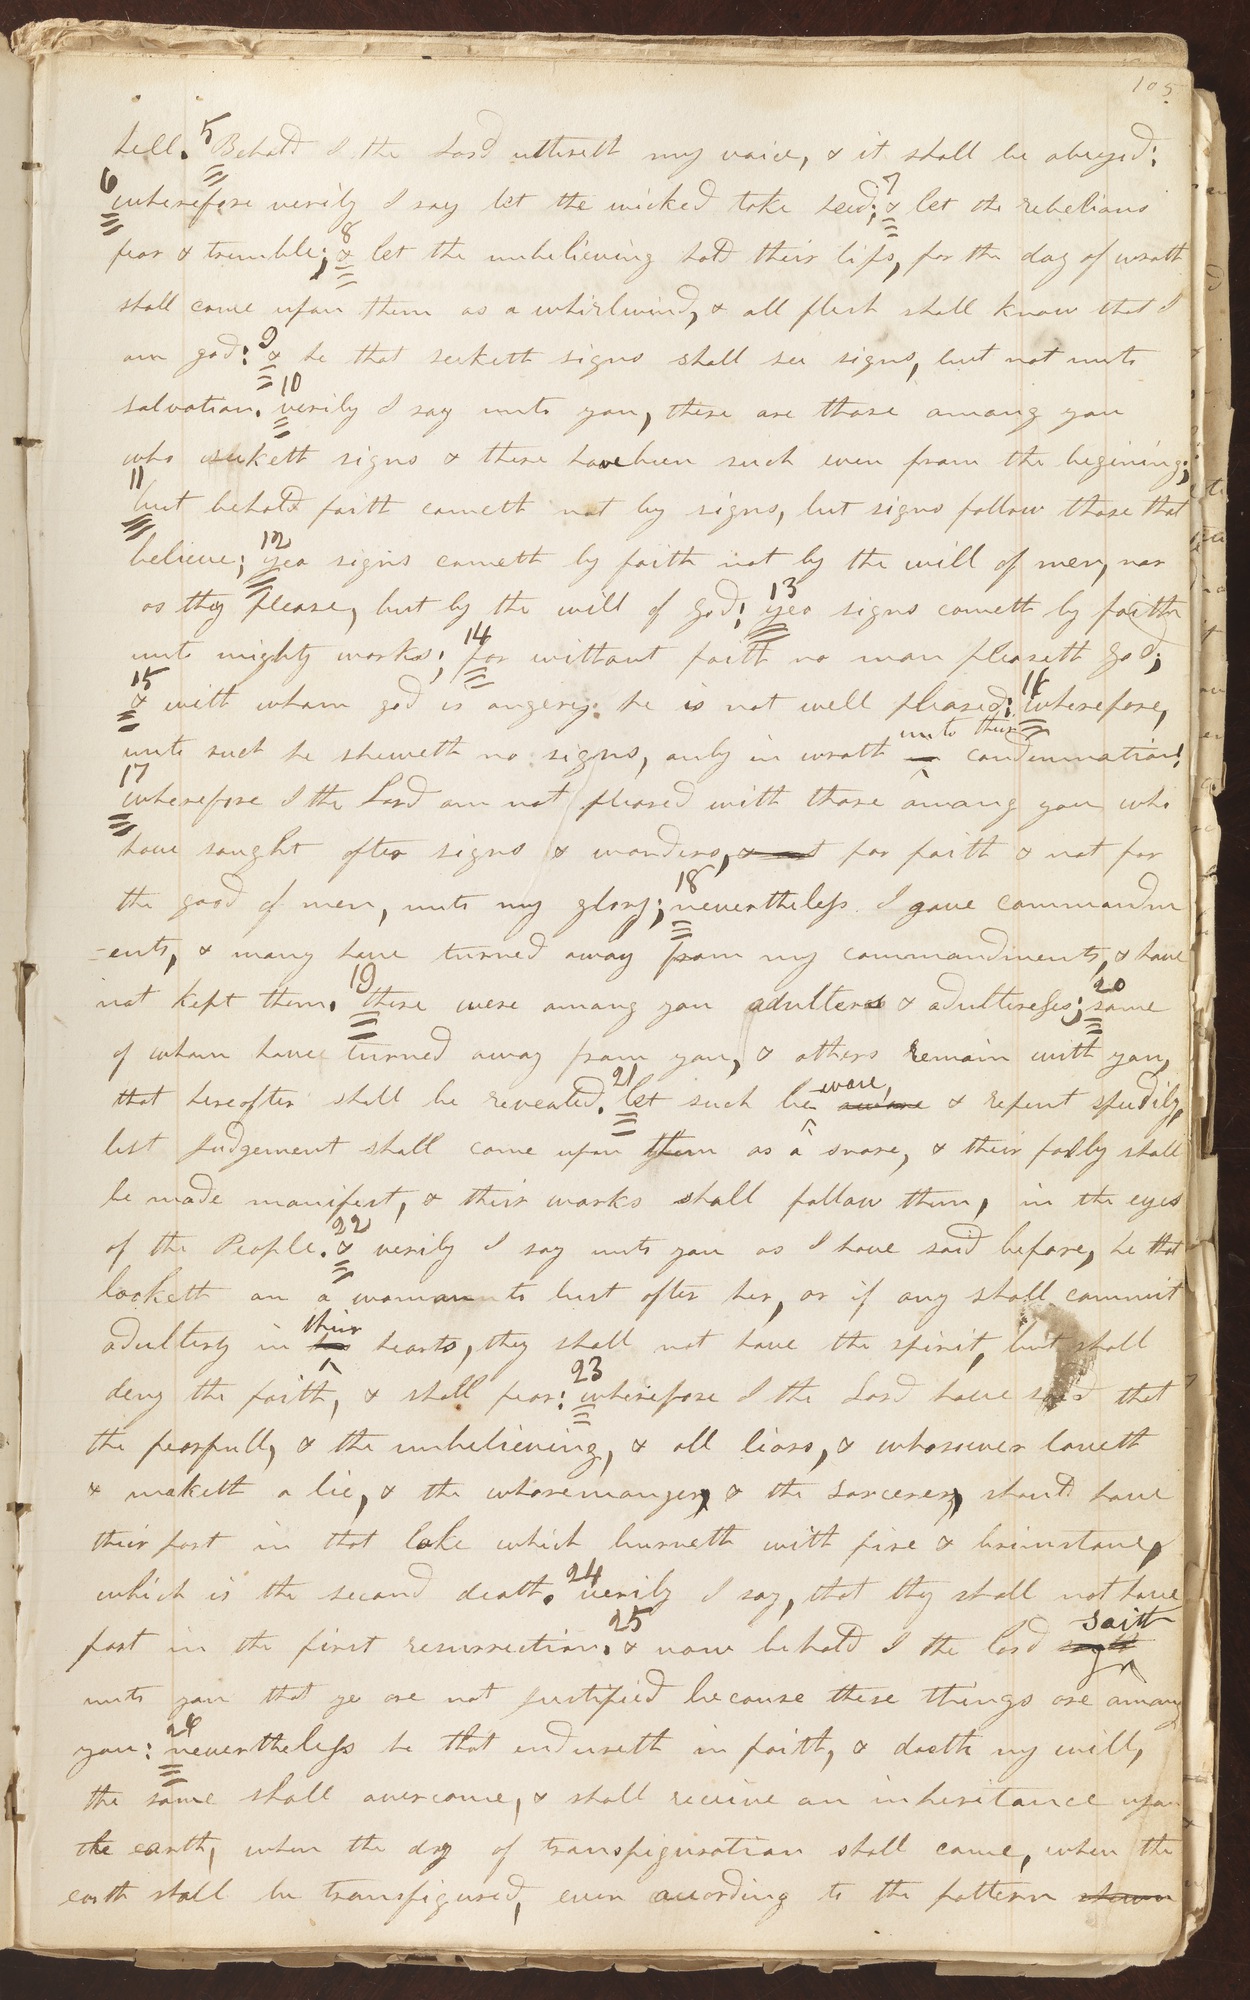 105
hell. 5 Behold I the Lord uttereth my voice, & it shall be obeyed:
6 wherefore verily I say let the wicked take heed; 7 & let the rebelious
fear & tremble; 8 & let the unbelieving hold their lips, for the day of wrath
shall come upon them as a whirlwind, & all flesh shall know that I
am god: 9 & he that seeketh signs shall see signs, but not unto
salvation. 10 verily I say unto you, there are those among you
who seeketh signs & there have been such even from the begining;
11 but behold faith cometh not by signs, but signs follow those that
believe; 12 yea signs cometh by faith not by the will of men, nor
as they please, but by the will of god: 13 yea signs cometh by faith
unto mighty works; 14 for without faith no man pleaseth god;
15 & with whom god is angery he is not well pleased: 16 wherefore,
unto such he sheweth no signs, only in wrath unto their condemnation:
17 wherefore I the Lord am not pleased with those among you who
have sought after signs & wonders, & not for faith & not for
the good of men, unto my glory; 18 nevertheless I gave commandm
-ents, & many have turned away from my commandments, & have
not kept them. 19 there were among you adulterers & adulteresses; 20 some
of whom have turned away from you, & others remain with you,
that hereafter shall be revealed. 21 let such beware, & repent speedily,
lest judgement shall come upon them as a snare, & their folly shall
be made manifest, & their works shall follow them, in the eyes
of the People. 22 & verily I say unto you as I have said before, he that
looketh on a woman to lust after her, or if any shall commit
adultery in their hearts, they shall not have the spirit, but shall
deny the faith, & shall fear: 23 wherefore I the Lord have said that
the fearfull, & the unbelieving, & all liars, & whosoever loveth
& maketh a lie, & the whoremonger, & the sorcerer, should have
their part in that lake which burneth with fire & brimstone,
which is the second death. 24 verily I say, that they shall not have
part in the first resurrection. 25 & now behold I the lord saith
unto you that ye are not justified because these things are among
you: 26 nevertheless he that endureth in faith, & doeth my will,
the same shall overcome, & shall receive an inheritance upon
the earth, when the day of transfiguration shall come, when the
earth shall be transfigured, even according to the pattern shown